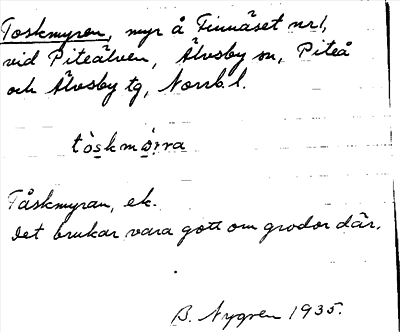 Toskmyren, myr å Finnäset nr 1,
vid Piteälven, Älvsby sn, Piteå
och Älvsby tg, Norrb. l.
tòskmö̀rra
Tåskmyran, ek.
Det brukar vara gott om grodor där.
B. Nygren 1935.